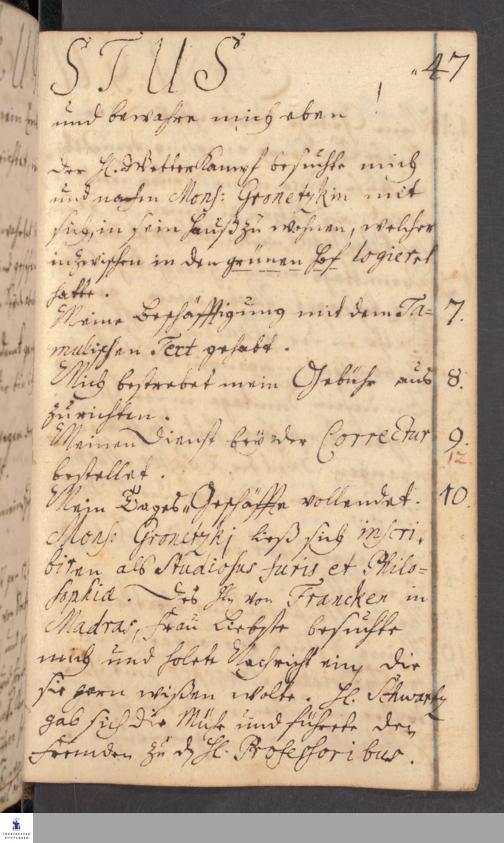 STUS 47
und bewahre mich eben
Der H. Wetterkampf besuchte mich
und nahm Mons: Gronetzkin mit
sich, in sein Hauß zu wohnen, welcher
inzwischen in den grünen Hof logieret
hatte.
Meine Beschäfftigung mit dem Ta- 7.
mulischen Text gehabt.
Mich bestrebet mein Gebühr aus 8.
zurichten.
Meinen Dienst bey der Correctur 9.
bestellet. 12.
Mein Tages-Geschäffte vollendet. 10.
Mons: Gronetzki ließ sich inscri-
biren als Studiosus Juris et Philo-
sophia. Des Hn von Francken in
Madras, Frau Liebste besuchte
mich und holete Nachricht ein, die
sie gern wißen wolte. H. Schwartz
gab sich die Mühe und führete den
Fremden zu d H. Professoribus.
FRANCKESCHE
STIFTUNGEN